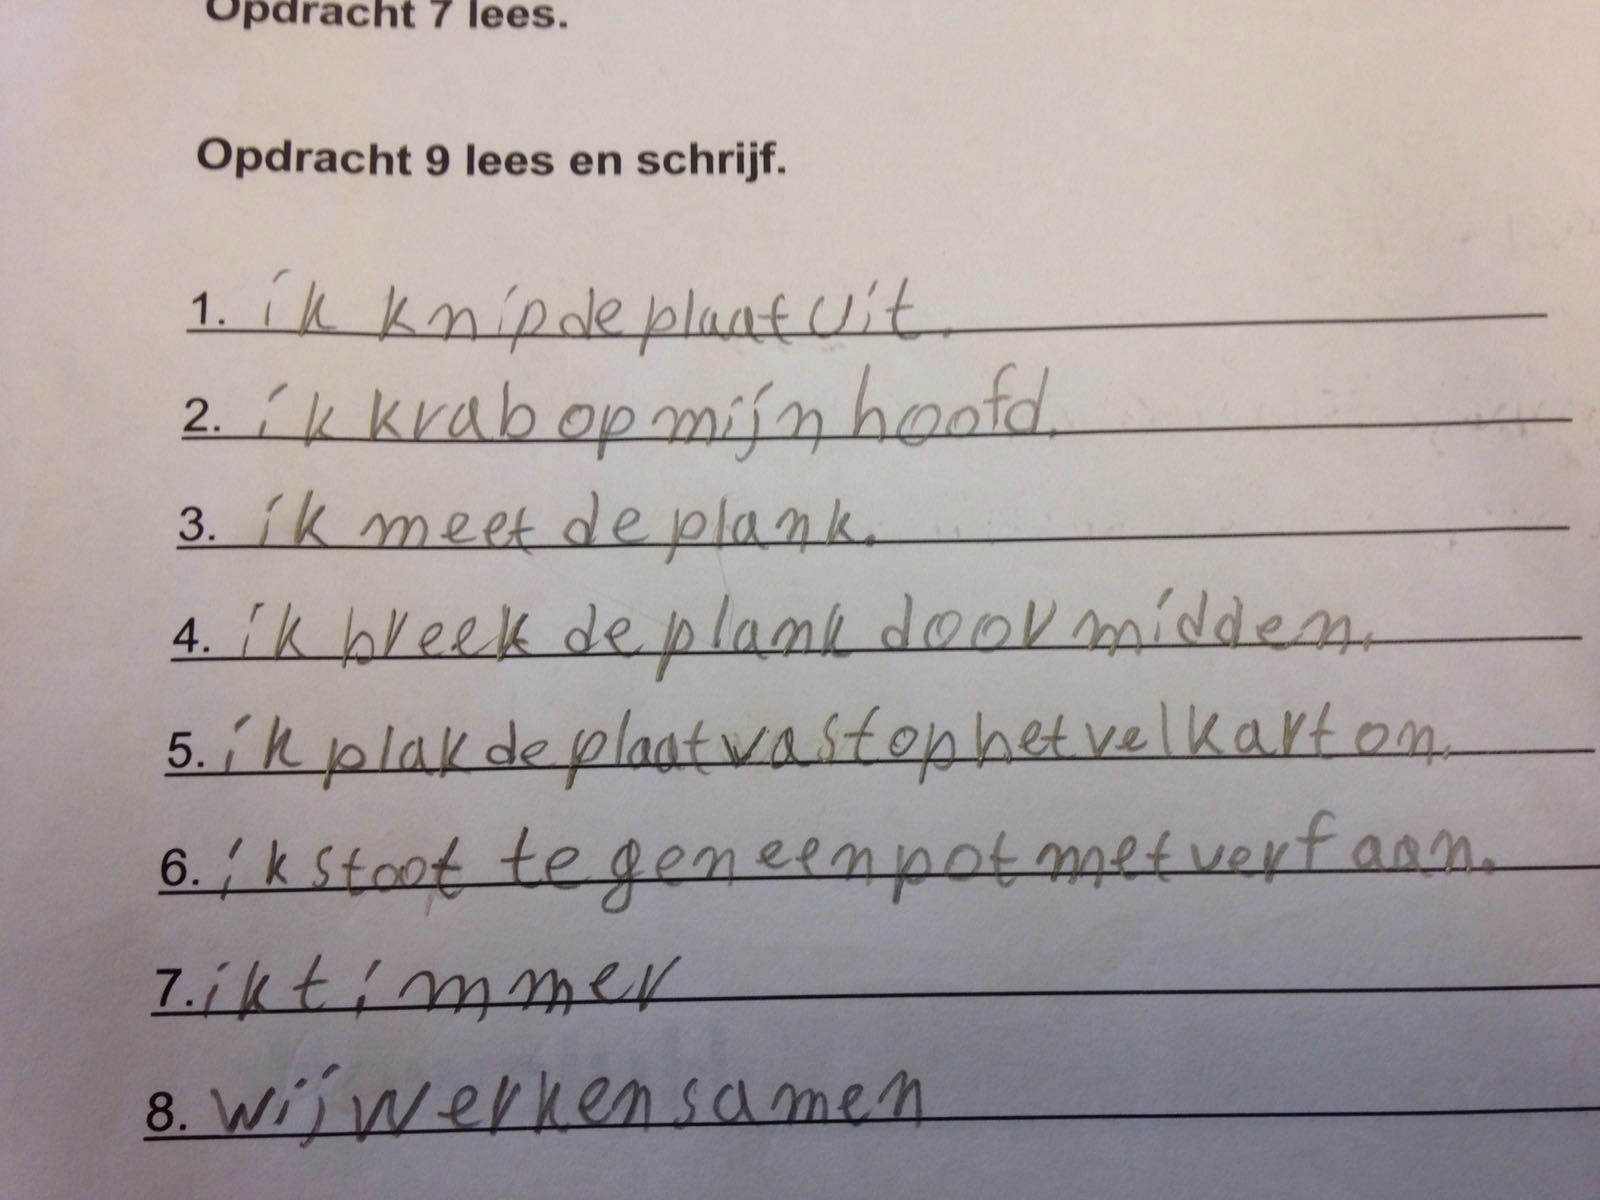 Opdracht 7 lees.
Opdracht 9 lees en schrijf.
1. ik knip de plaat uit.
2. ik krab op mijn hoofd.
3. ik meet de plank.
4. ik breek de plank door midden.
5. ik plak de plaat vast op het vel karton.
6. ik stoot tegen een pot met verf aan.
7. ik timmer
8. wij werken samen